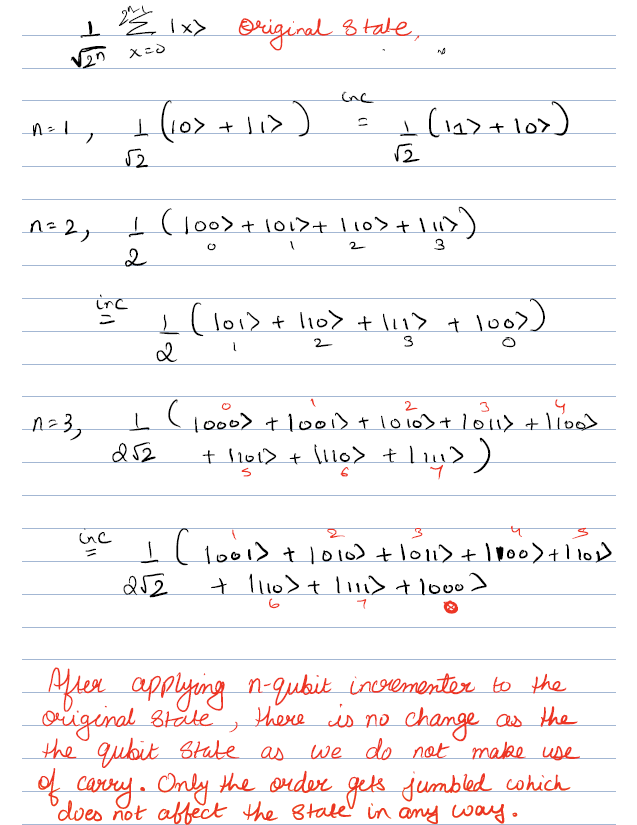 1/√2ⁿ 2ⁿ-1 Σ x=0 |x> Original State,
n=1, 1/√2 (|0> + |1>) inc = 1/√2 (|1> + |0>)
n=2, 1/2 (|00> + |01> + |10> + |11>)
0 1 2 3
inc = 1/2 (|01> + |10> + |11> + |00>)
1 2 3 0
0 1 2 3 4
n=3, 1/2√2 (|000> + |001> + |010> + |011> + |100>
+ |101> + |110> + |111>)
5 6 7
1 2 3 4 5
inc = 1/2√2 (|001> + |010> + |011> + |100> + |101>
+ |110> + |111> + |000>
6 7 0
After applying n-qubit incrementer to the
original state, there is no change as the
the qubit state as we do not make use
of carry. Only the order gets jumbled which
does not affect the state in any way.